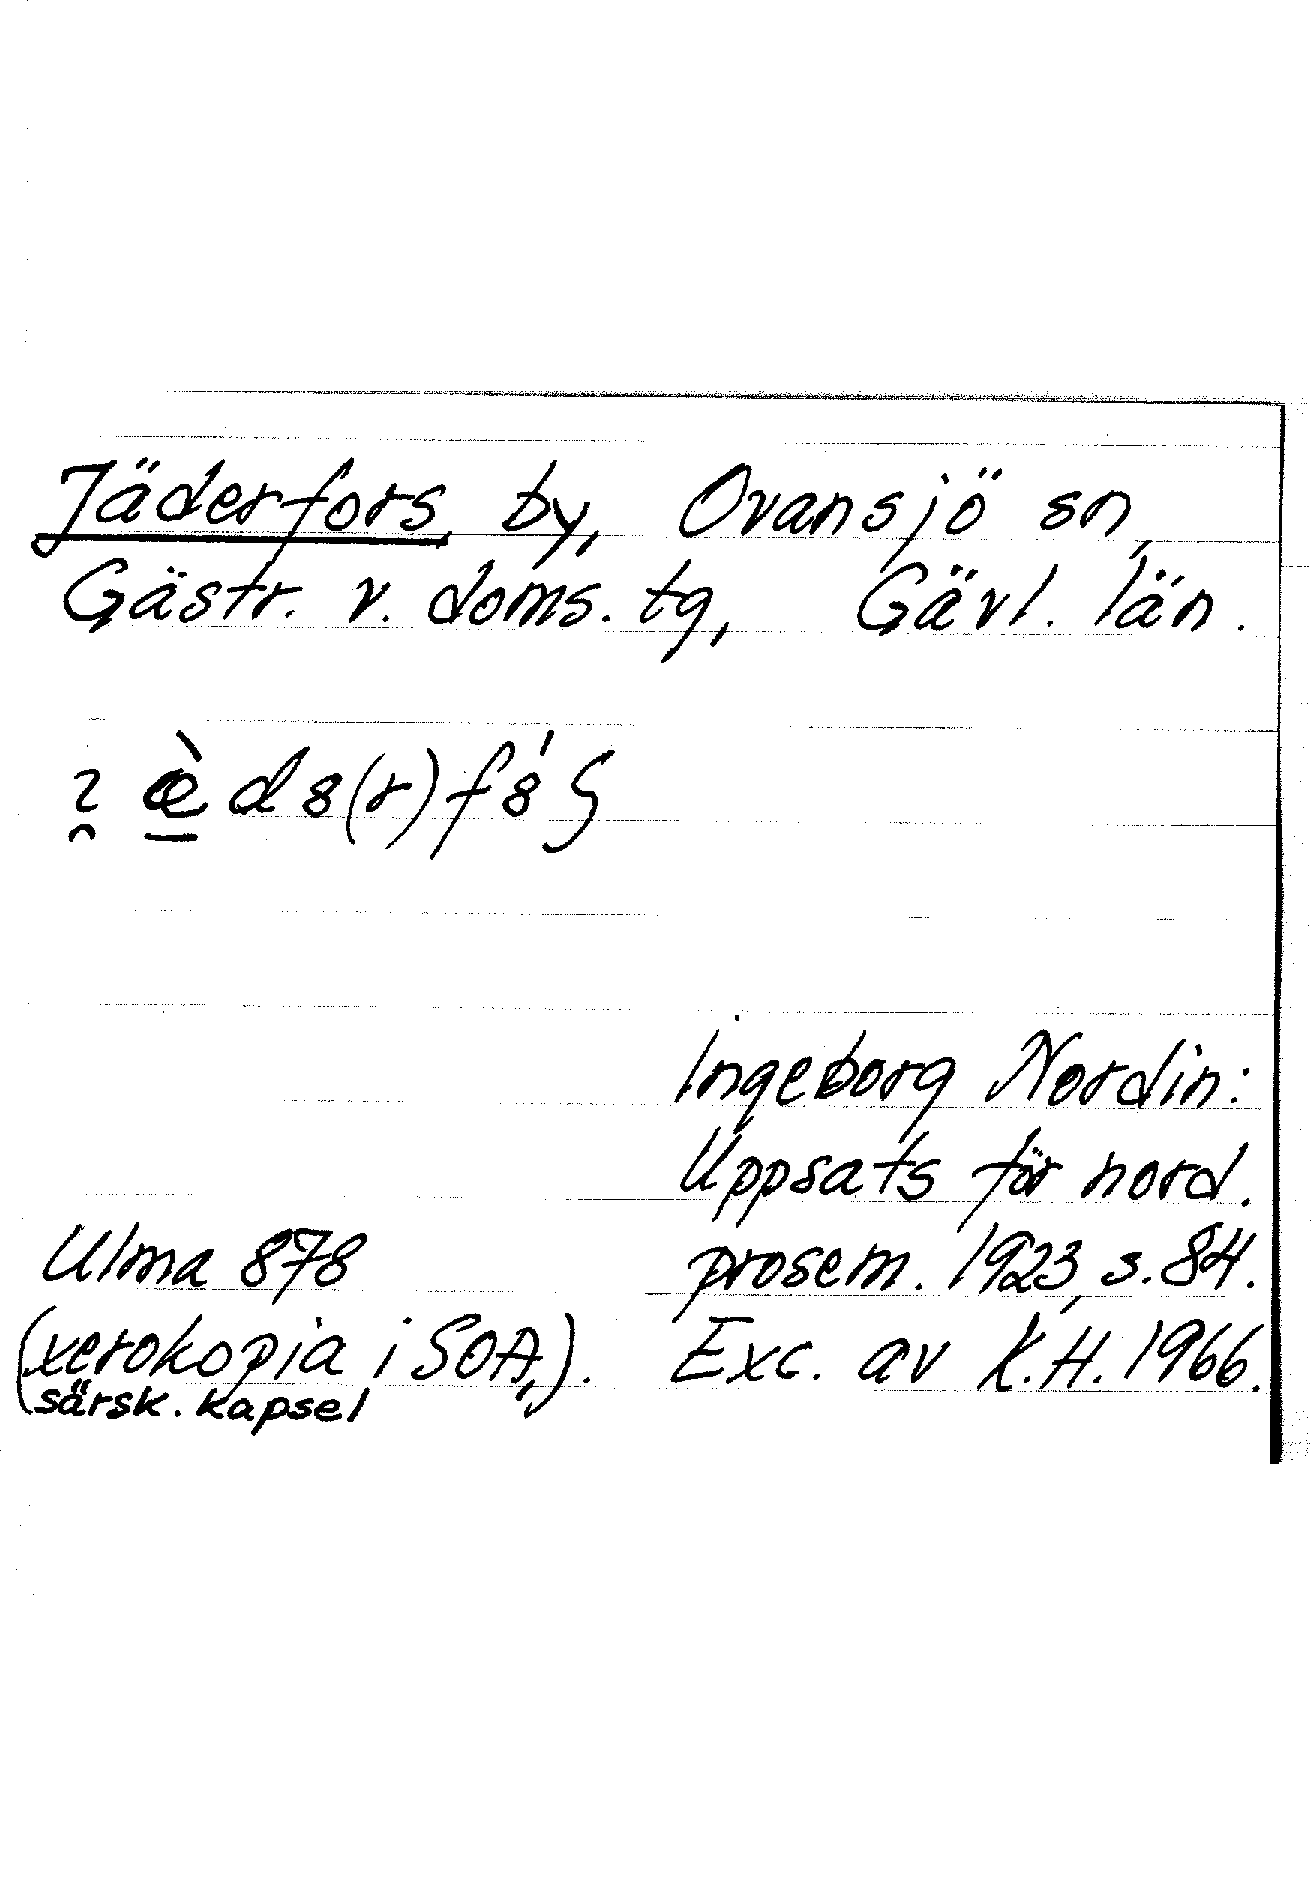 Jäderfors by, Ovansjö sn,
Gästr. v. doms. tg, Gävl. län.
Ingeborg Nordin:
Uppsats för nord.
Ulma 878 prosem. 1923, s. 84.
(xerokopia i SOA,). Exc. av K.H. 1966.
särsk. kapsel